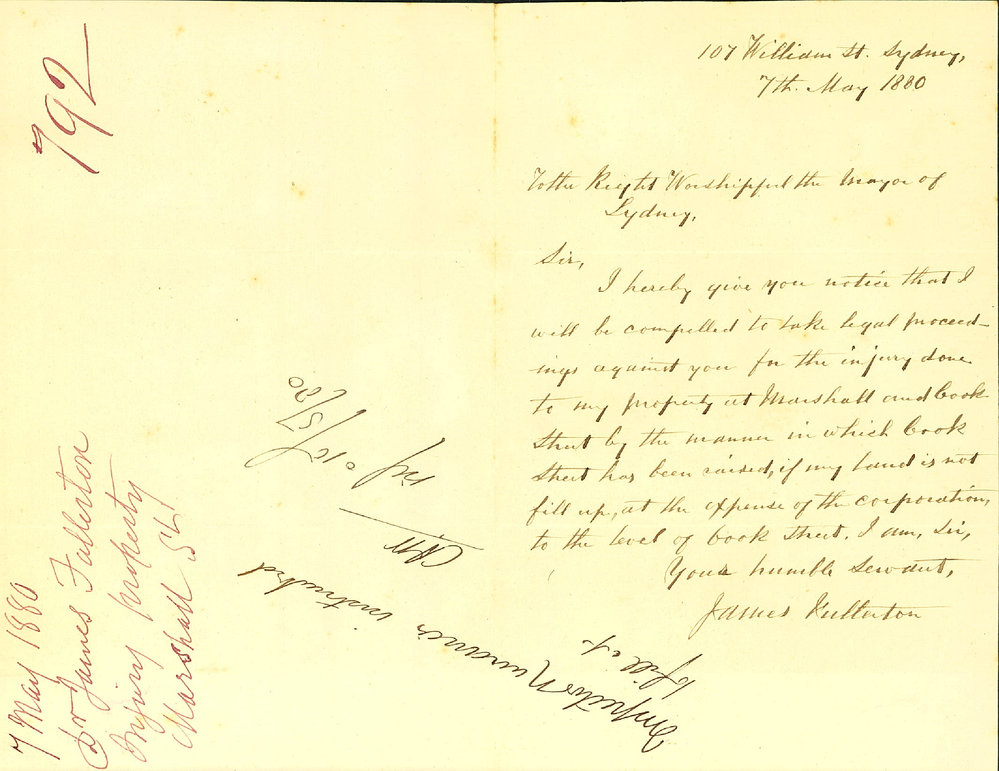 107 William St. Sydney,
7th. May 1880
To the Right Worshipful the Mayor of
Sydney,
Sir,
I hereby give you notice that I
will be compelled to take legal proceed-
ings against you for the injury done
to my property at Marshall and Cook
Street by the manner in which Cook
Street has been raised, if my land is not
fill up, at the expense of the corporation,
to the level of Cook Street. I am, Sir,
Your humble Servant,
James Fullerton
792
7 May 1880
Dr James Fullerton
Injury property
Marshall St
Inspector instructed
to fill it